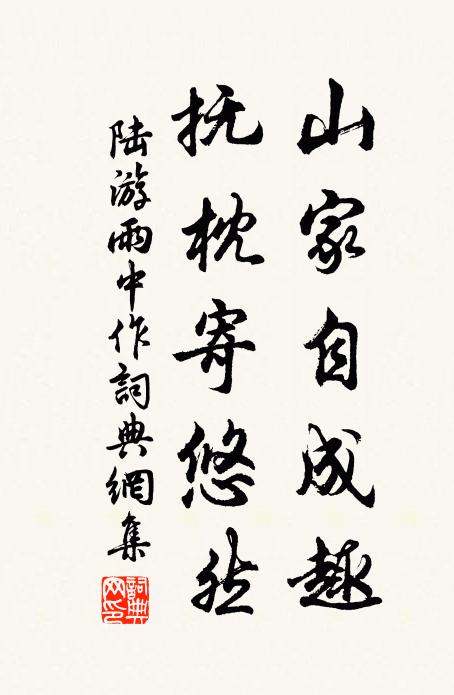 山家自成趣
抚枕寄悠然
陆游雨中作詞典網集
詞典网印